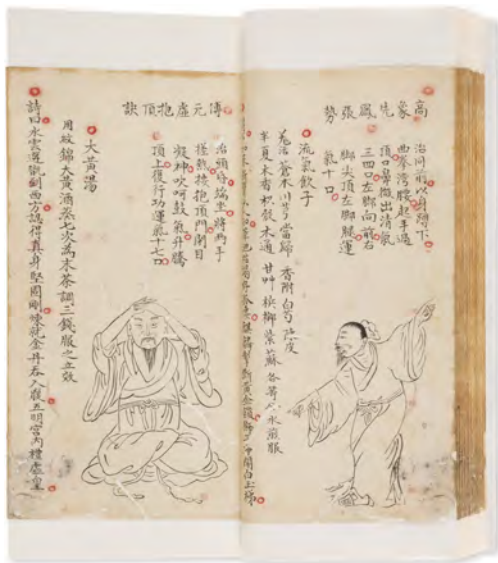 高象先鳳張勢
治同前以身蹲下
曲拳灣腰起手過
頂口鼻微出清氣
三四口左脚向前右
脚尖頂左脚腿運
氣十口
流氣飲子
羗活 蒼术 川芎 當歸 香附 白芍 陳皮
半夏 木香 枳殼 木通 甘艸 檳榔 紫蘇 各等分水煎服
傅元虛抱頂訣
治頭昏端坐將兩手
搓熱按抱頂門閉目
凝神吹呵鼓氣升騰
頂上復行功運氣十七口
大黃湯
用紋錦大黃酒蒸七次為末茶調三錢服之立效
詩曰水雲遊觀到西方認得真身堅固剛煉就金丹吞入腹五明宮內禮虛皇